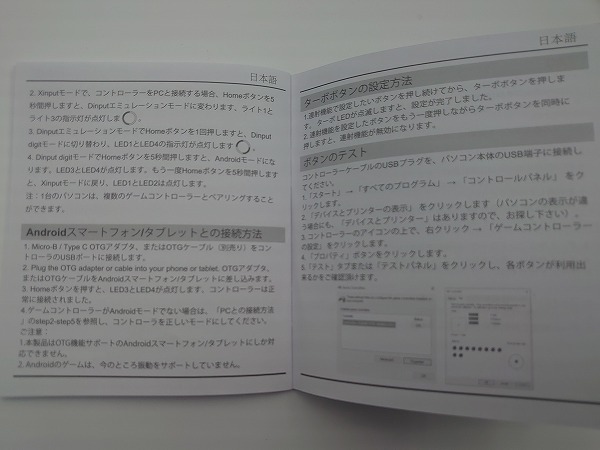 日本語
2. Xinputモードで、コントローラーをPCと接続する場合、Homeボタンを5
秒間押しますと、Dinputエミュレーションモードに変わります。ライト1と
ライト3の指示灯が点灯しま 。
3. DinputエミュレーションモードでHomeボタンを1回押しますと、Dinput
digitモードに切り替わり、LED1とLED4の指示灯が点灯します 。
4. Dinput digitモードでHomeボタンを5秒間押しますと、Androidモードにな
ります。LED3とLED4が点灯します。もう一度Homeボタンを5秒間押します
と、Xinputモードに戻り、LED1とLED2は点灯します。
注：1台のパソコンは、複数のゲームコントローラーとペアリングすること
ができます。
Androidスマートフォン/タブレットとの接続方法
1. Micro-B / Type C OTGアダプタ、またはOTGケーブル（別売り）をコン
トローラのUSBポートに接続します。
2. Plug the OTG adapter or cable into your phone or tablet. OTGアダプタ、
またはOTGケーブルをAndroidスマートフォン/タブレットに差し込みます。
3. Homeボタンを押すと、LED3とLED4が点灯します。コントローラーは正
常に接続されました。
4.ゲームコントローラーがAndroidモードでない場合は、「PCとの接続方法
」のstep2-step5を参照し、コントローラを正しいモードにしてください。
ご注意：
1.本製品はOTG機能サポートのAndroidスマートフォン/タブレットにしか対
応できません。
2. Androidのゲームは、今のところ振動をサポートしていません。
日本語
ターボボタンの設定方法
1.連射機能で設定したいボタンを押し続けてから、ターボボタンを押しま
す。ターボ LEDが点滅しますと、設定が完了しました。
2.連射機能を設定したボタンをもう一度押しながらターボボタンを同時に
押しますと、連射機能が無効になります。
ボタンのテスト
コントローラーケーブルのUSBプラグを、パソコン本体のUSB端子に接続し
てください。
1.「スタート」→「すべてのプログラム」 → 「コントロールパネル」 をク
リックします。
2.「デバイスとプリンターの表示」 をクリックします（パソコンの表示が違
う場合にも、「デバイスとプリンター」はありますので、お探し下さい）。
3.コントローラーのアイコンの上で、右クリック → 「ゲームコントローラー
の設定」をクリックします。
4.「プロパティ」ボタンをクリックします。
5.「テスト」タブまたは「テストパネル」をクリックし、各ボタンが利用出
来るかをご確認頂けます。